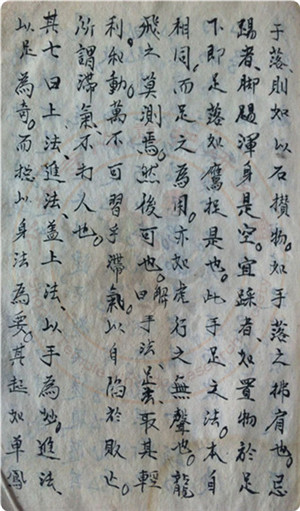 于落。則如以石攢物。如手落之拂眉也。忌
踢者、脚踢渾身是空。宜踩者、如置物於足
下。即足落如鷹捉是也。此手足之法、本自
相同。而足之為用。亦如虎行之無聲也。龍
飛之莫測焉。然後可也。解曰手法、足法、取其輕
利和動。萬不可習乎滯氣。以自陷於敗亡。
所謂滯氣、不打人也。
其七曰上法、進法、蓋上法、以手為妙。進法、
以足為奇。而總以身法為要。其起如單鳳